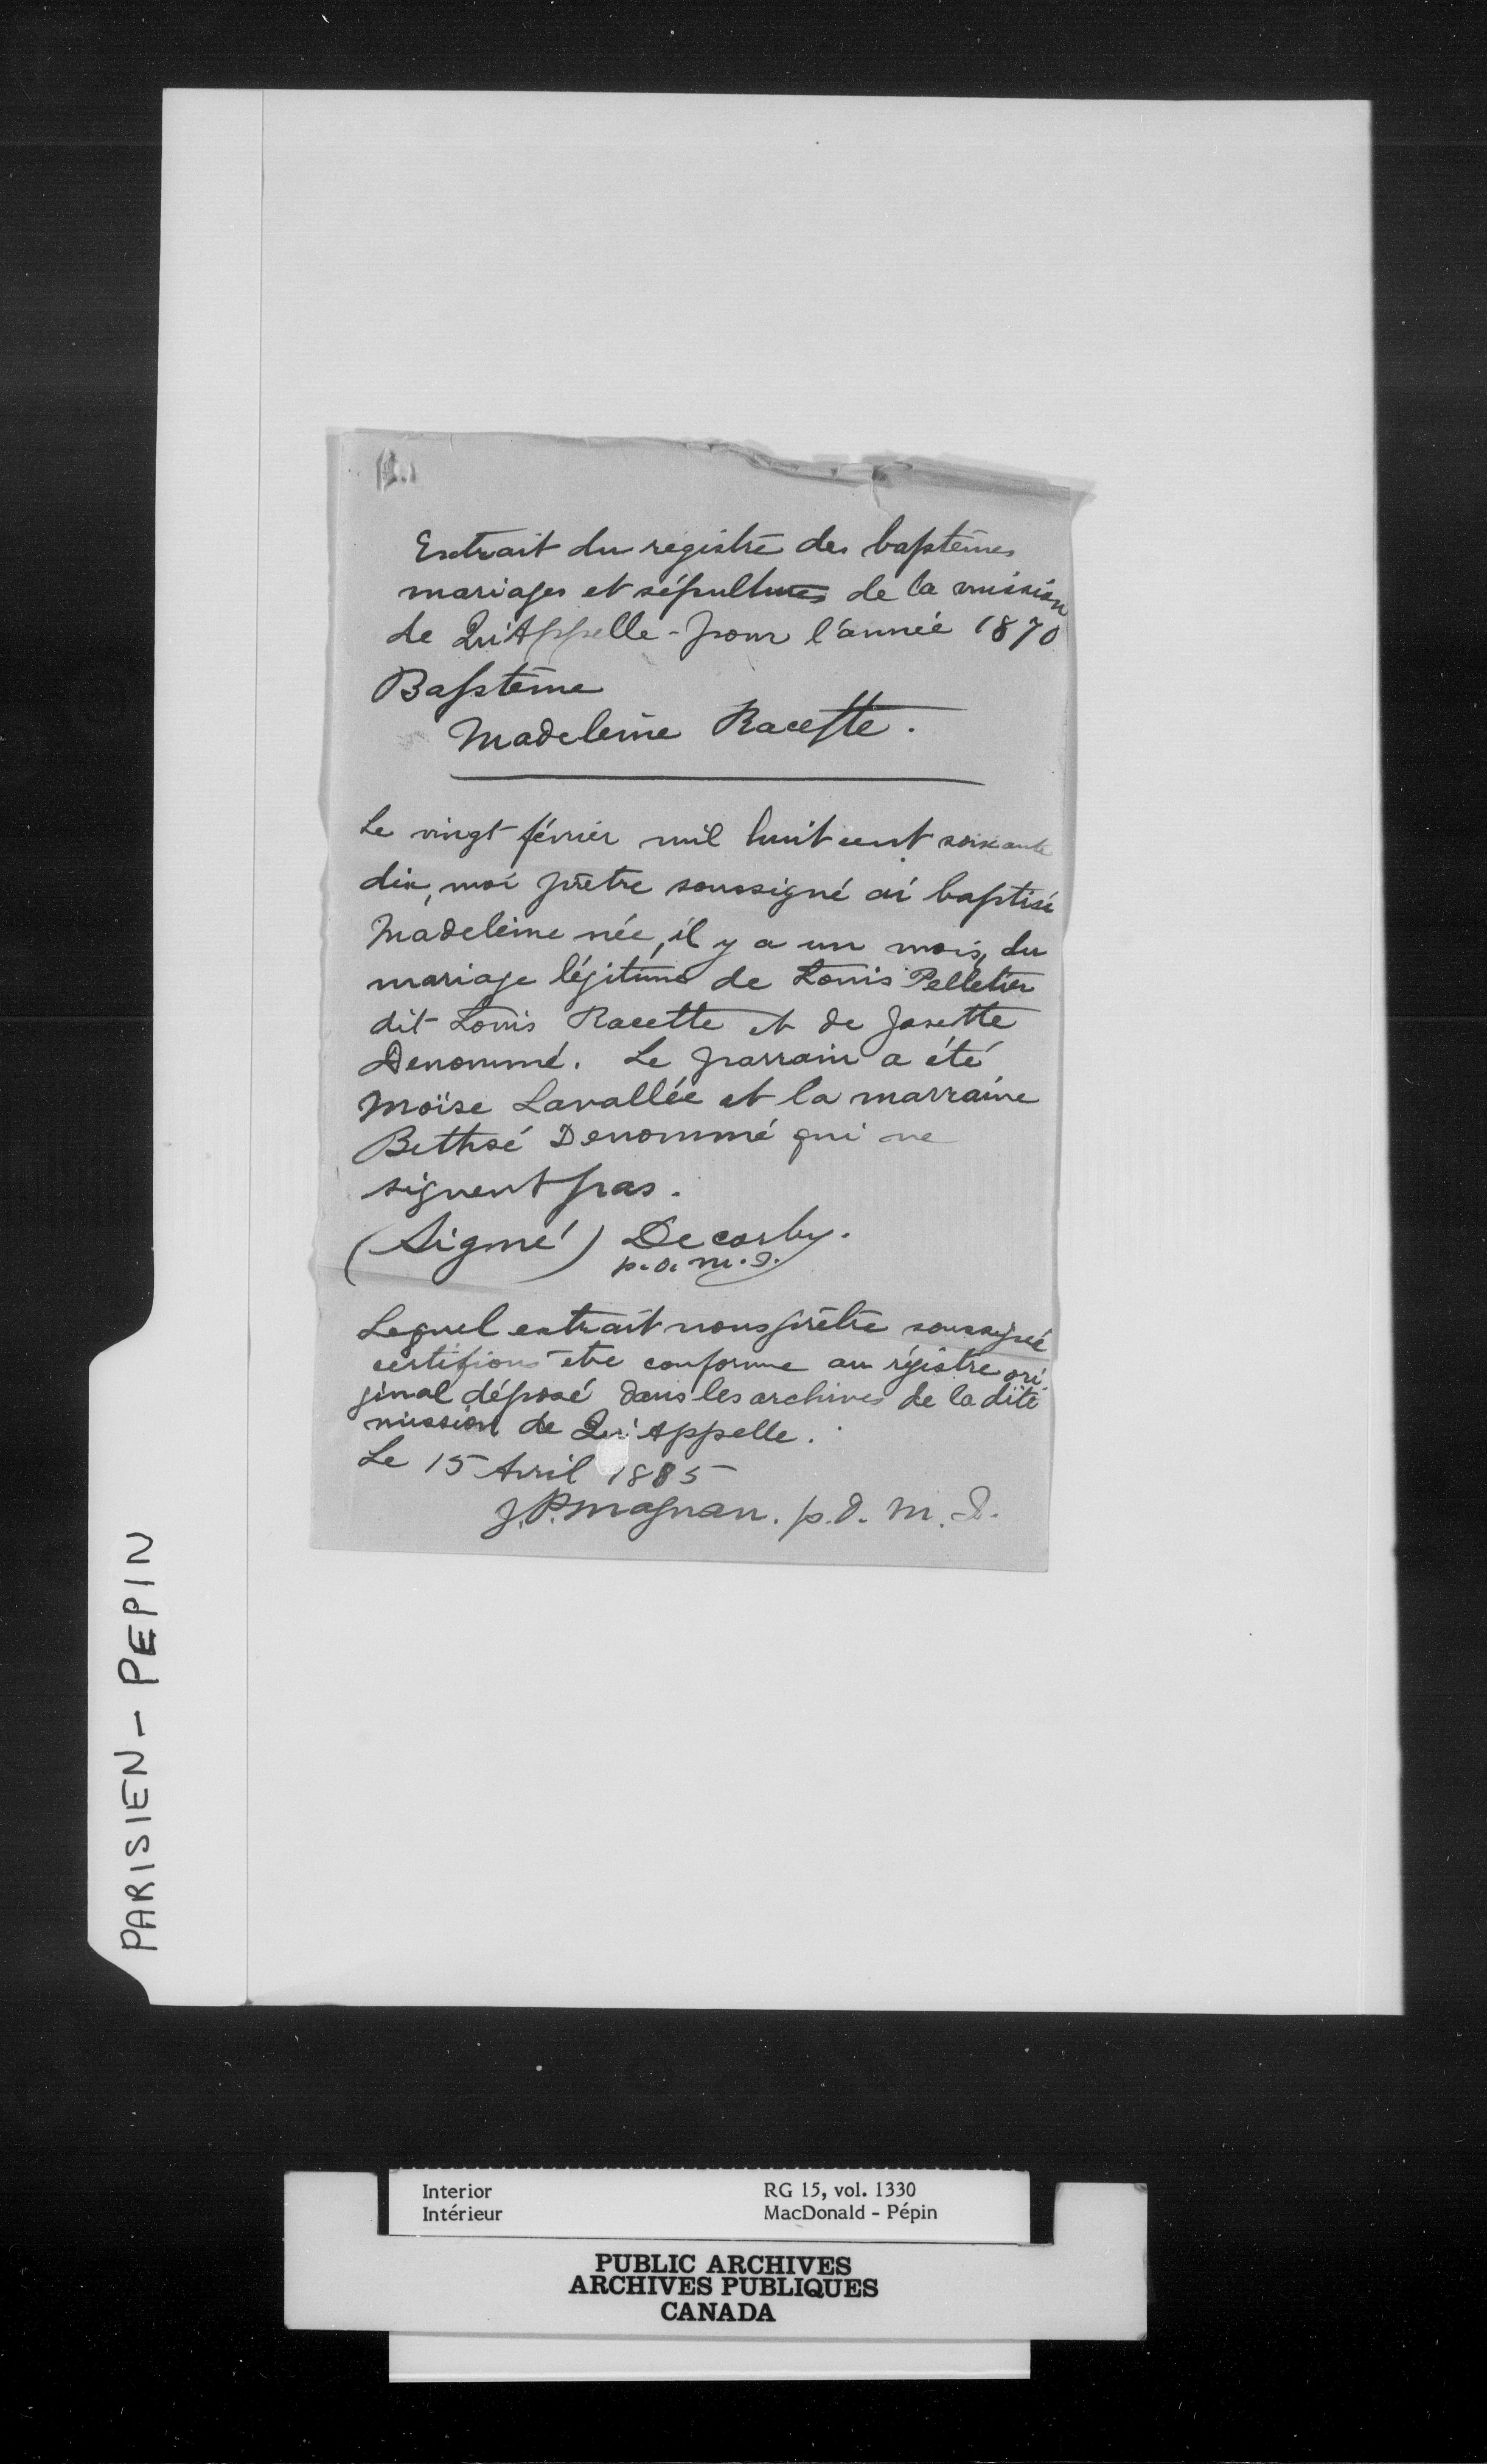 Extrait du registre des baptêmes
mariages et sépultures de la mission
de Qu'Appelle - pour l'année 1870
Baptême
Madeleine Racette.
Le vingt février mil huit cent soixante
dix, moi prêtre soussigné ai baptisé
Madeleine née, il y a un mois, du
mariage légitime de Louis Pelletier
dit Louis Racette et de Josette
Denommé. Le parrain a été
Moïse Lavallée et la marraine
Bethsé Denommé qui ne
signent pas.
(Signé) Decorby.
p.o.m.I.
Lequel extrait nous prêtre soussigné
certifions être conforme au régistre ori-
ginal déposé dans les archives de la dite
mission de Qu'Appelle.
Le 15 Avril 1885
J.P. Magnan. p.O.M.I.
PARISIEN - PEPIN
Interior RG 15, vol. 1330
Intérieur MacDonald - Pépin
PUBLIC ARCHIVES
ARCHIVES PUBLIQUES
CANADA